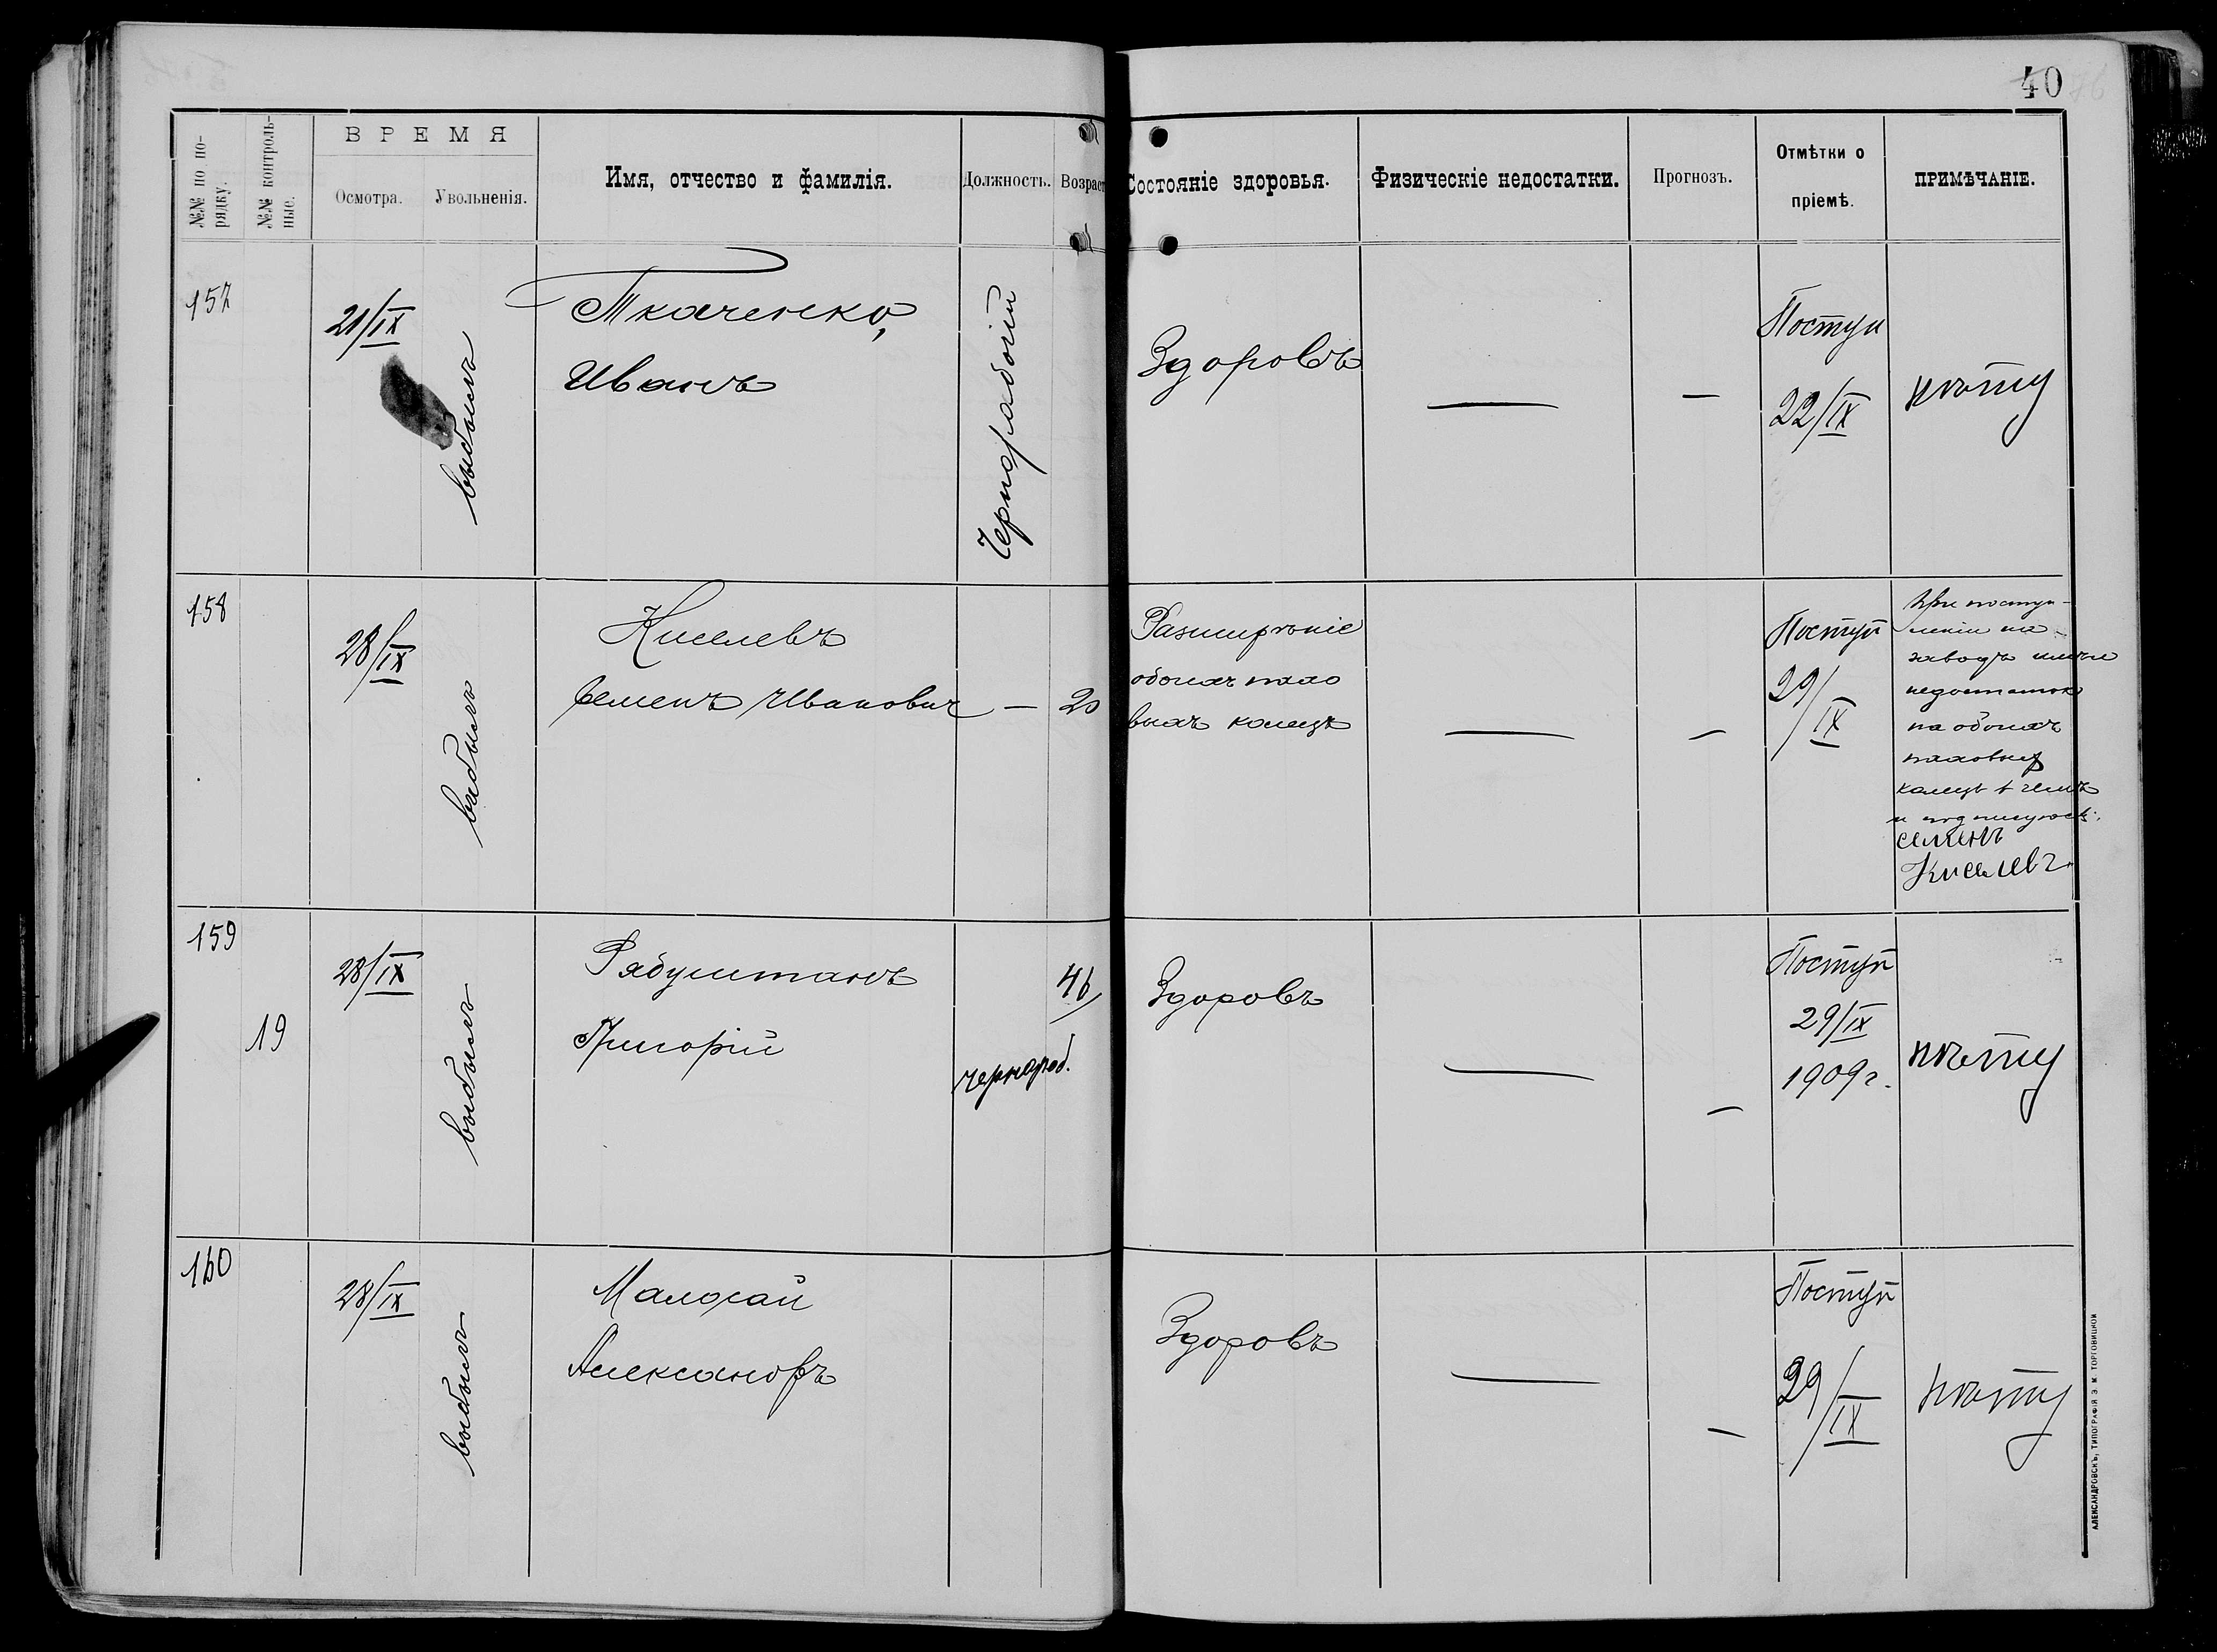 40
№№ по по-
рядку.
№№ контроль-
ные.
ВРЕМЯ
Осмотра.
Увольненія.
Имя, отчество и фамилія.
Должность.
Возраст
Состояніе здоровья.
Физическіе недостатки.
Прогнозъ.
Отмѣтки о
пріемѣ.
ПРИМѢЧАНІЕ.
157
21/IX
выбылъ
Ткаченко,
Иванъ
Чернорабочій
Здоровъ
—
—
Поступ
22/IX
нѣту
158
28/IX
выбылъ
Киселевъ
Семенъ Иванович
—
20
Разширѣніе
обоихъ пахо
выхъ колецъ
—
—
Поступ
29/IX
При поступ-
леніи на
заводъ имѣлъ
недостаток
на обоихъ
паховых
колецъ в чемъ
и подписуюсь.
Семенъ
Киселевъ
159
19
28/IX
выбылъ
Рябуштанъ
Григорій
чернораб.
46
Здоровъ
—
—
Поступ
29/IX
1909г.
нѣту
160
28/IX
выбылъ
Малохай
Александръ
Здоровъ
—
—
Поступ
29/IX
нѣту
АЛЕКСАНДРОВСКЪ, ТИПОГРАФІЯ Э. М. ТОРГОВИЦКОЙ